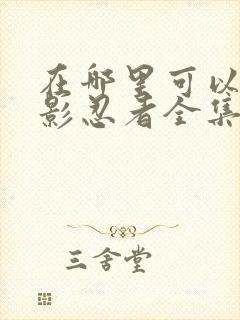 在哪里可以
影忍者全集
三舍堂